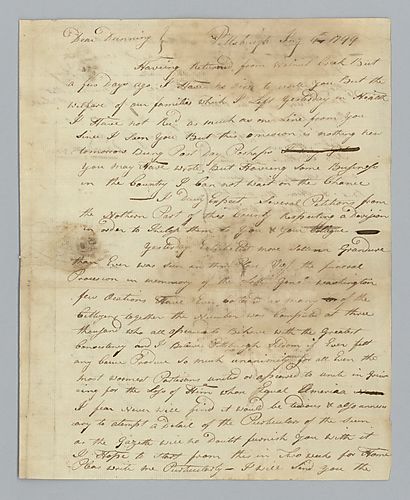 Dear Dunning } Pittsburgh Jany 1799
Haveing Returned from Walnut Creek But
a few Days ago I Have to write you But the
welfare of our families which I Left Yesterday in Health
I Have not Red as much as one Line from you
Since I Seen you But this omission is nothing new
tomorrow Being Post Day Perhaps
you may Have wrote But Haveing Some Business
in the Country I Can not wait on the Chance
I Daily Expect Several Petitions from
the Nothern Part of this County Respecting a Division
in order to them to you & your
Yesterday Exhibited more Solemn Grandure
than Ever was Seen in this the funeral
Procession in memmory of the Late Genl Washington
few Orations Have Ever as many of the
Cittizens together the Number was Computed at three
thousand who all appeared to Behave with the Greatest
and I Believe Pittsburgh Seldom if Ever felt
any Cause Produce So much unanimity for all Even the
most warmest Partisans united or appeared to unite in
for the Loss of Him whose Equal America
I fear Never will find it would be tedious &
to attempt a Detail of the Perticulars of the Seen
as the Gazette will no Doubt furnish you With it
I Hope to Start from this in two weeks for Home
Pleas write me Perticularly — I will Send you the